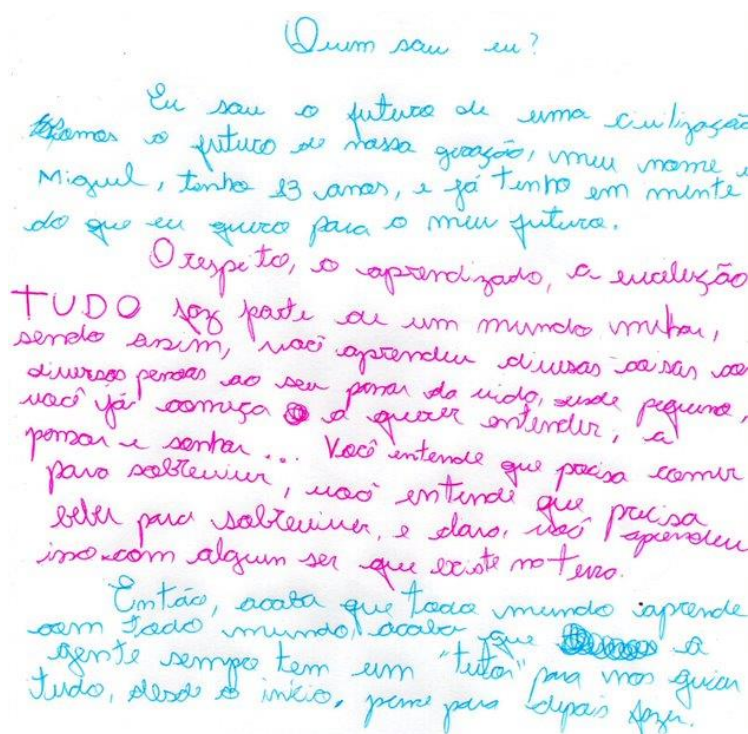 Quem sou eu?
Eu sou o futuro de uma civilização
Somos o futuro de nossa geração, meu nome é
Miguel, tenho 13 anos, e já tenho em mente
do que eu quero para o meu futuro.
O respeito, o aprendizado, a evolução
TUDO faz parte de um mundo melhor,
sendo assim, você aprendeu diversas coisas com
diversas pessoas ao seu passar da vida, desde pequeno,
você já começa a querer entender, a
pensar e sonhar... Você entende que precisa comer
para sobreviver, você entende que precisa
beber para sobreviver, e claro, você aprendeu
isso com algum ser que existe na terra.
Então, acaba que todo mundo aprende
com todo mundo, acaba que a
gente sempre tem um "tutor" para nos guiar
tudo, desde o início, pense para depois fazer.